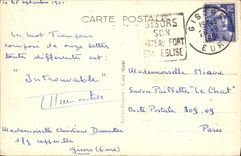 Le 28 Septembre 1951
CARTE POSTALE
Le mot Français
composé de onze lettres
toutes différentes est :
"Introuvable"
Mademoiselle Christiane
Gisors (Eure)
GISORS
SON
CHATEAU FORT
SON EGLISE
GISORS
EURE
12
Mademoiselle
Savon Paillette "Le Chat"
Boite Postale 309.09
Paris